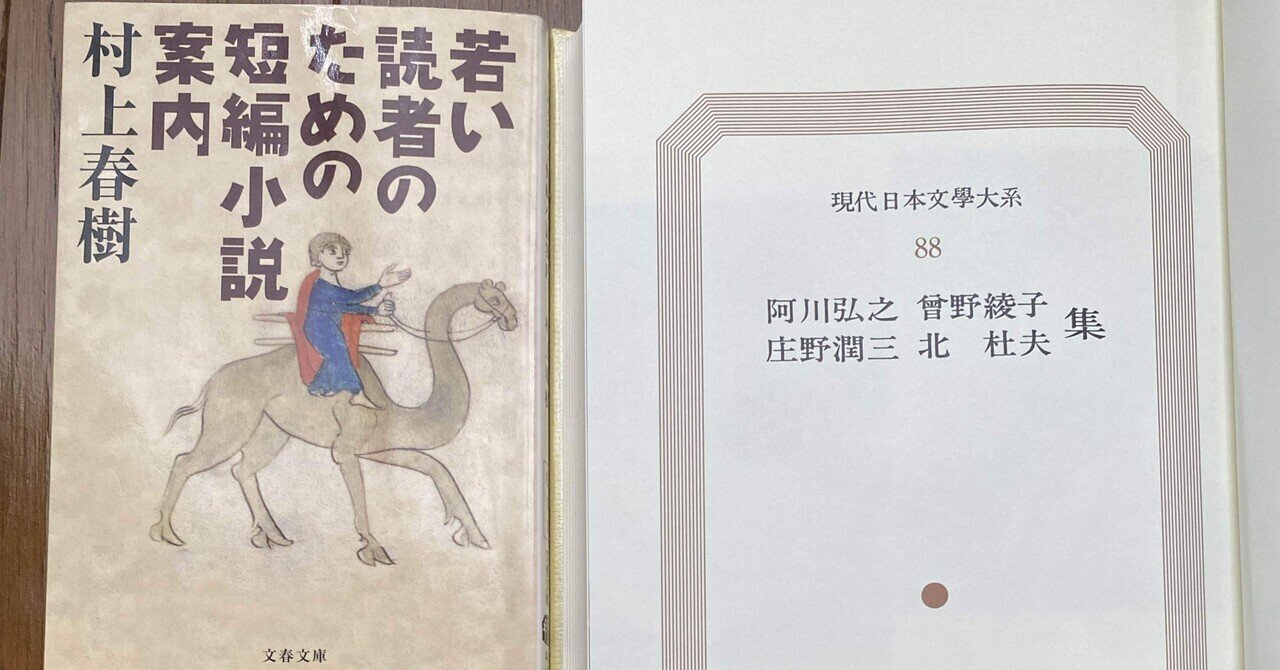 若い
読者の
ための
短編小説
案内
村上春樹
文春文庫
現代日本文學大系
88
阿川弘之 曾野綾子
庄野潤三 北 杜夫 集